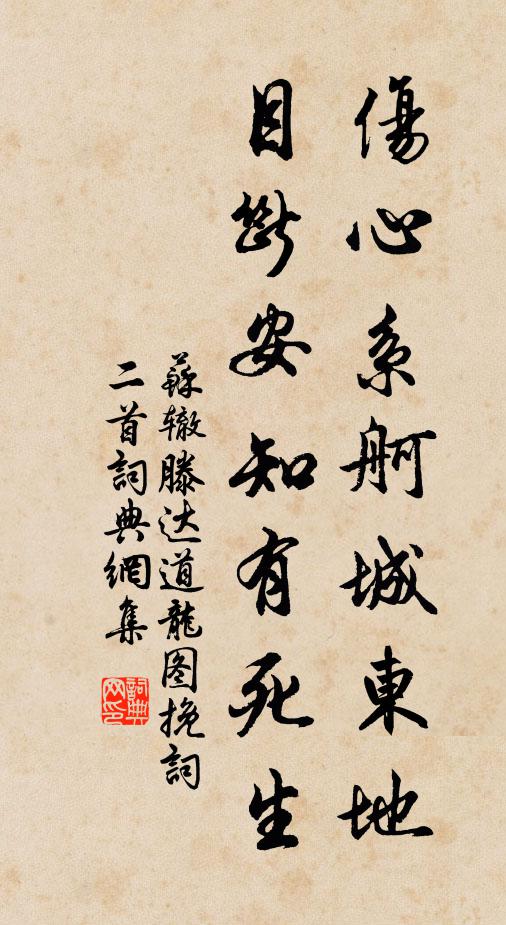 傷心系舸城東地
目斷安知有死生
蘇辙滕达道龍图挽詞
二首詞典網集
詞典网印